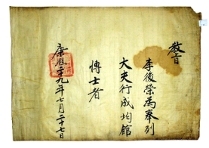 教旨
李後榮為奉列
大夫行成均館
博士者
康熙十九年七月二十七日